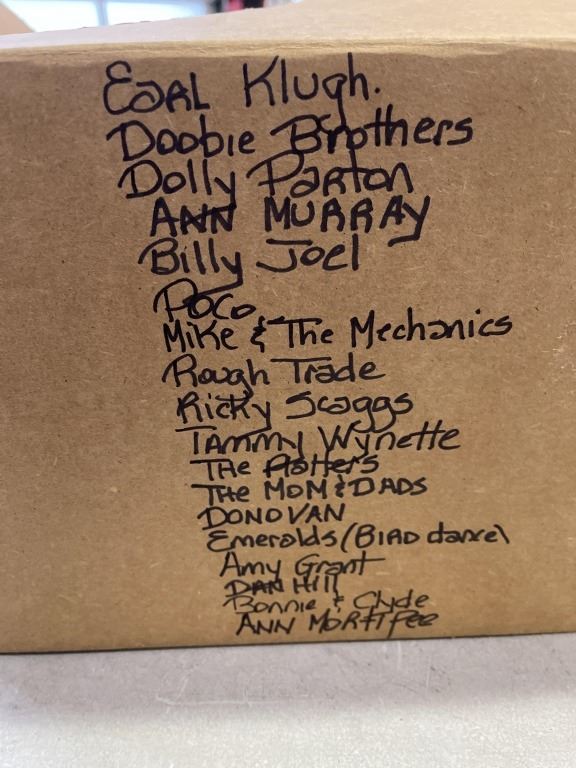 Earl Klugh.
Doobie Brothers
Dolly Parton
ANN MURRAY
Billy Joel
Poco
Mike & The Mechanics
Rough Trade
Ricky Scaggs
TAMMY Wynette
THe Platters
THe MOM & DADS
DONOVAN
Emeralds (BIRD dance)
Amy Grant
DAN Hill
Bonnie & Clyde
ANN MORTIFee